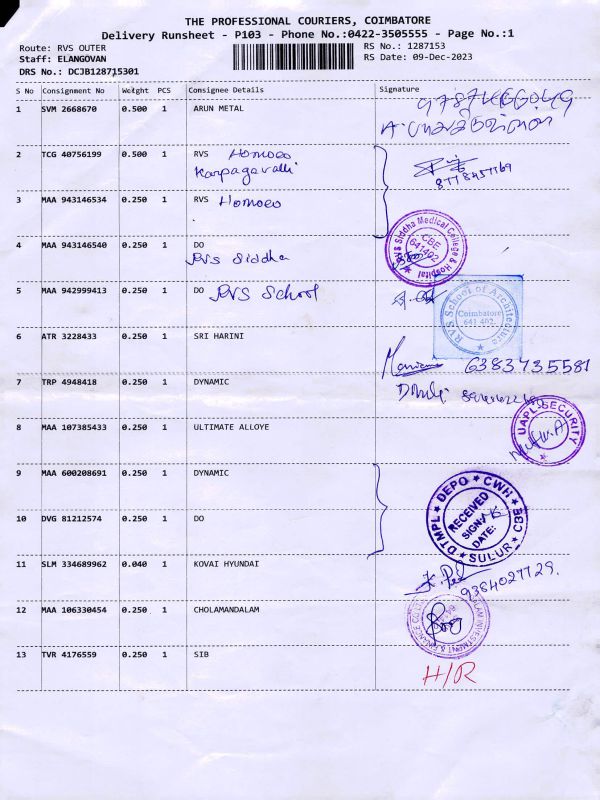 THE PROFESSIONAL COURIERS, COIMBATORE
Delivery Runsheet - P103 - Phone No.:0422-3505555 - Page No.:1
Route: RVS OUTER
RS No.: 1287153
Staff: ELANGOVAN
RS Date: 09-Dec-2023
DRS No.: DCJB128715301
S No Consignment No Weight PCS Consignee Details Signature
1 SVM 2668670 0.500 1 ARUN METAL
2 TCG 40756199 0.500 1 RVS Homoeo
Karpagavalli
3 MAA 943146534 0.250 1 RVS Homoeo
RVS Siddha Medical College & Hospital CBE 641402
4 MAA 943146540 0.250 1 DO
RVS Siddha
5 MAA 942999413 0.250 1 DO RVS School
RVS School of Architecture Coimbatore 641 402.
6 ATR 3228433 0.250 1 SRI HARINI
6383735581
7 TRP 4948418 0.250 1 DYNAMIC
8 MAA 107385433 0.250 1 ULTIMATE ALLOYE
UAPL SECURITY
9 MAA 600208691 0.250 1 DYNAMIC
DTMPL DEPO CWH CBE SULUR RECEIVED SIGN: DATE:
10 DVG 81212574 0.250 1 DO
11 SLM 334689962 0.040 1 KOVAI HYUNDAI
9384027729.
12 MAA 106330454 0.250 1 CHOLAMANDALAM
13 TVR 4176559 0.250 1 SIB H/R